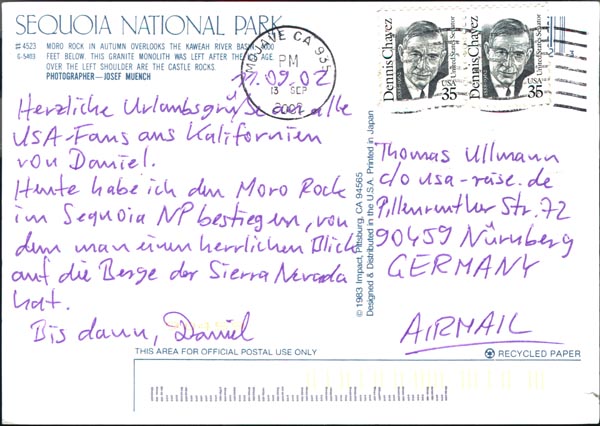 SEQUOIA NATIONAL PARK
#4523 MORO ROCK IN AUTUMN OVERLOOKS THE KAWEAH RIVER BASIN,
G-5403 FEET BELOW. THIS GRANITE MONOLITH WAS LEFT AFTER THE
OVER THE LEFT SHOULDER ARE THE CASTLE ROCKS.
PHOTOGRAPHER—JOSEF MUENCH
MOJAVE CA 935
PM
13 SEP
2002
11.09.02
Herzliche Urlaubsgrüße alle
USA-Fans aus Kalifornien
von Daniel.
Heute habe ich den Moro Rock
im Sequoia NP bestiegen, von
dem man einen herrlichen Blick
auf die Berge der Sierra Nevada
hat.
Bis dann, Daniel
© 1983 Impact, Pittsburg, CA 94565
Designed & Distributed in the U.S.A. Printed in Japan
Dennis Chavez
United States Senator
35
USA
Dennis Chavez
United States Senator
35
USA
Thomas Ullmann
c/o usa-reise.de
Pillenreuther Str. 72
90459 Nürnberg
GERMANY
AIRMAIL
THIS AREA FOR OFFICIAL POSTAL USE ONLY
RECYCLED PAPER